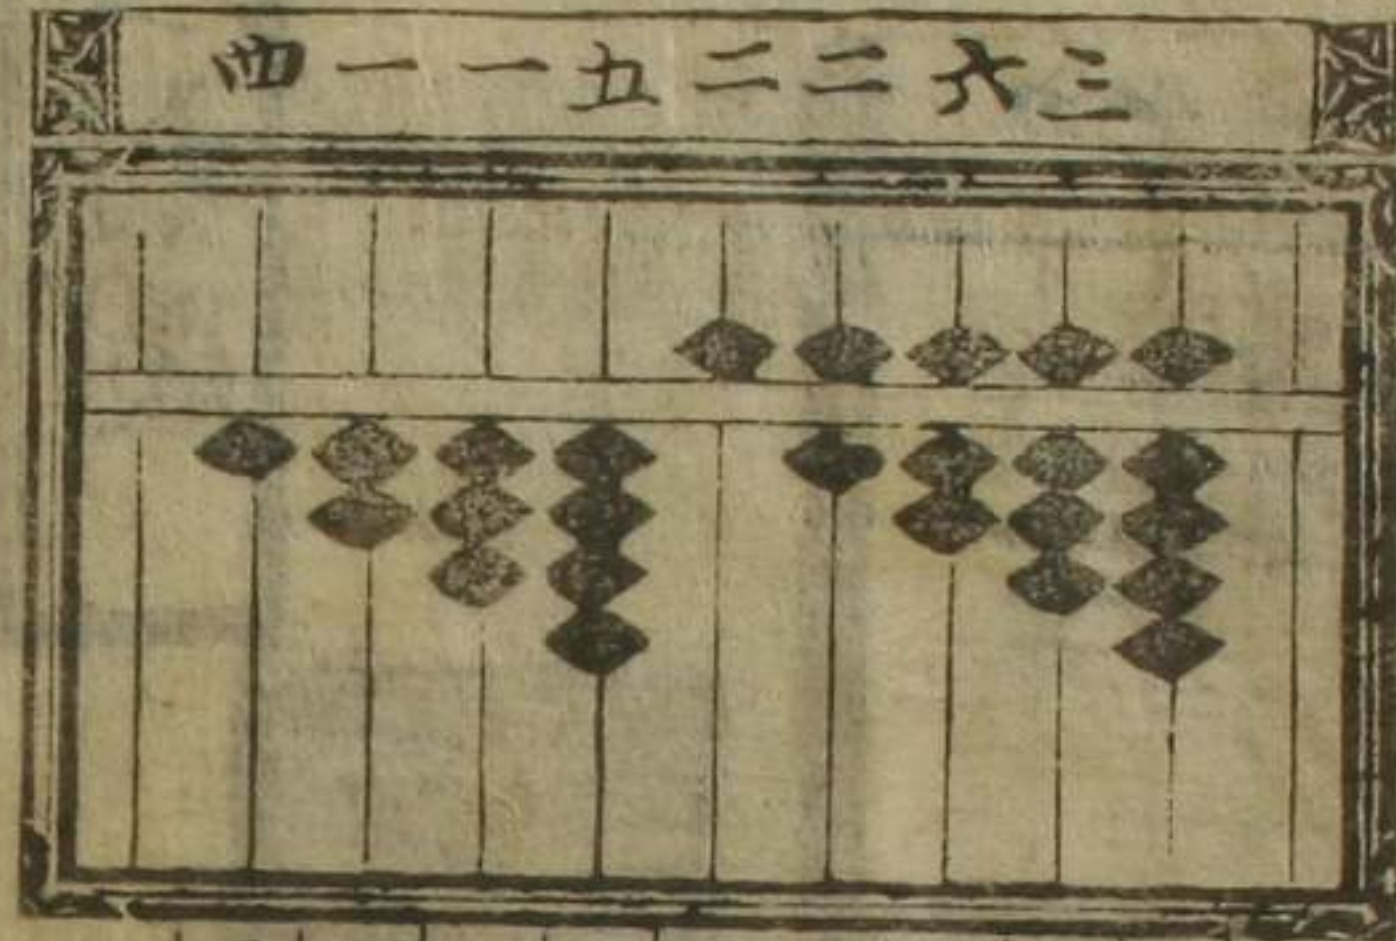 四一一五二二六三